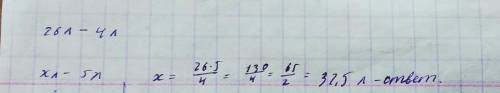 26 л - 4 л
x л - 5 л x = 26·5/4 = 130/4 = 65/2 = 32,5 л - ответ.